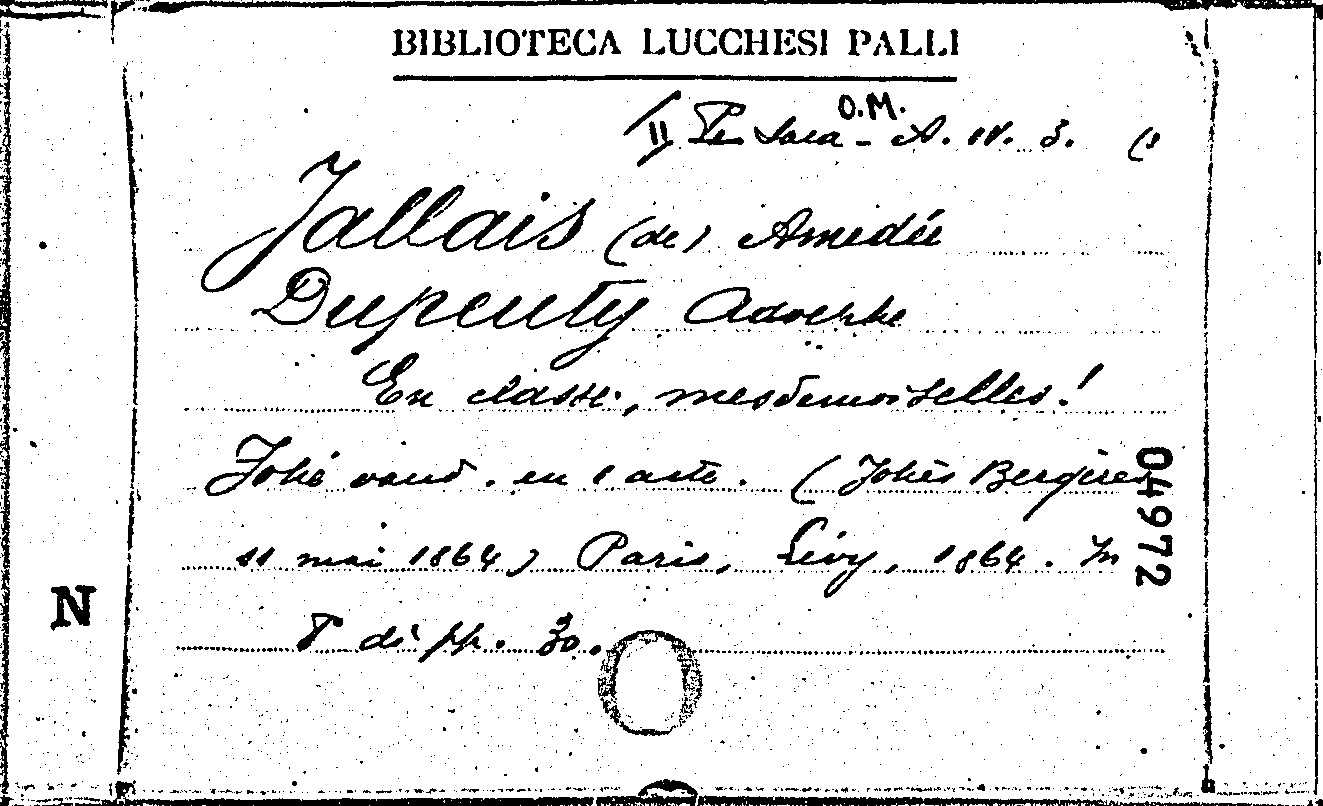 BIBLIOTECA LUCCHESI PALLI
O.M.
II Per Sala - A. IV. 3. (3
Jallais (de) Amedée
Dupeuty Adolphe
En classe, mesdemoiselles!
Folié vaud. en 1 acte. (Folies Bergères
11 mai 1864) Paris, Lévy, 1864. In
8° di pp. 30.
04972
N